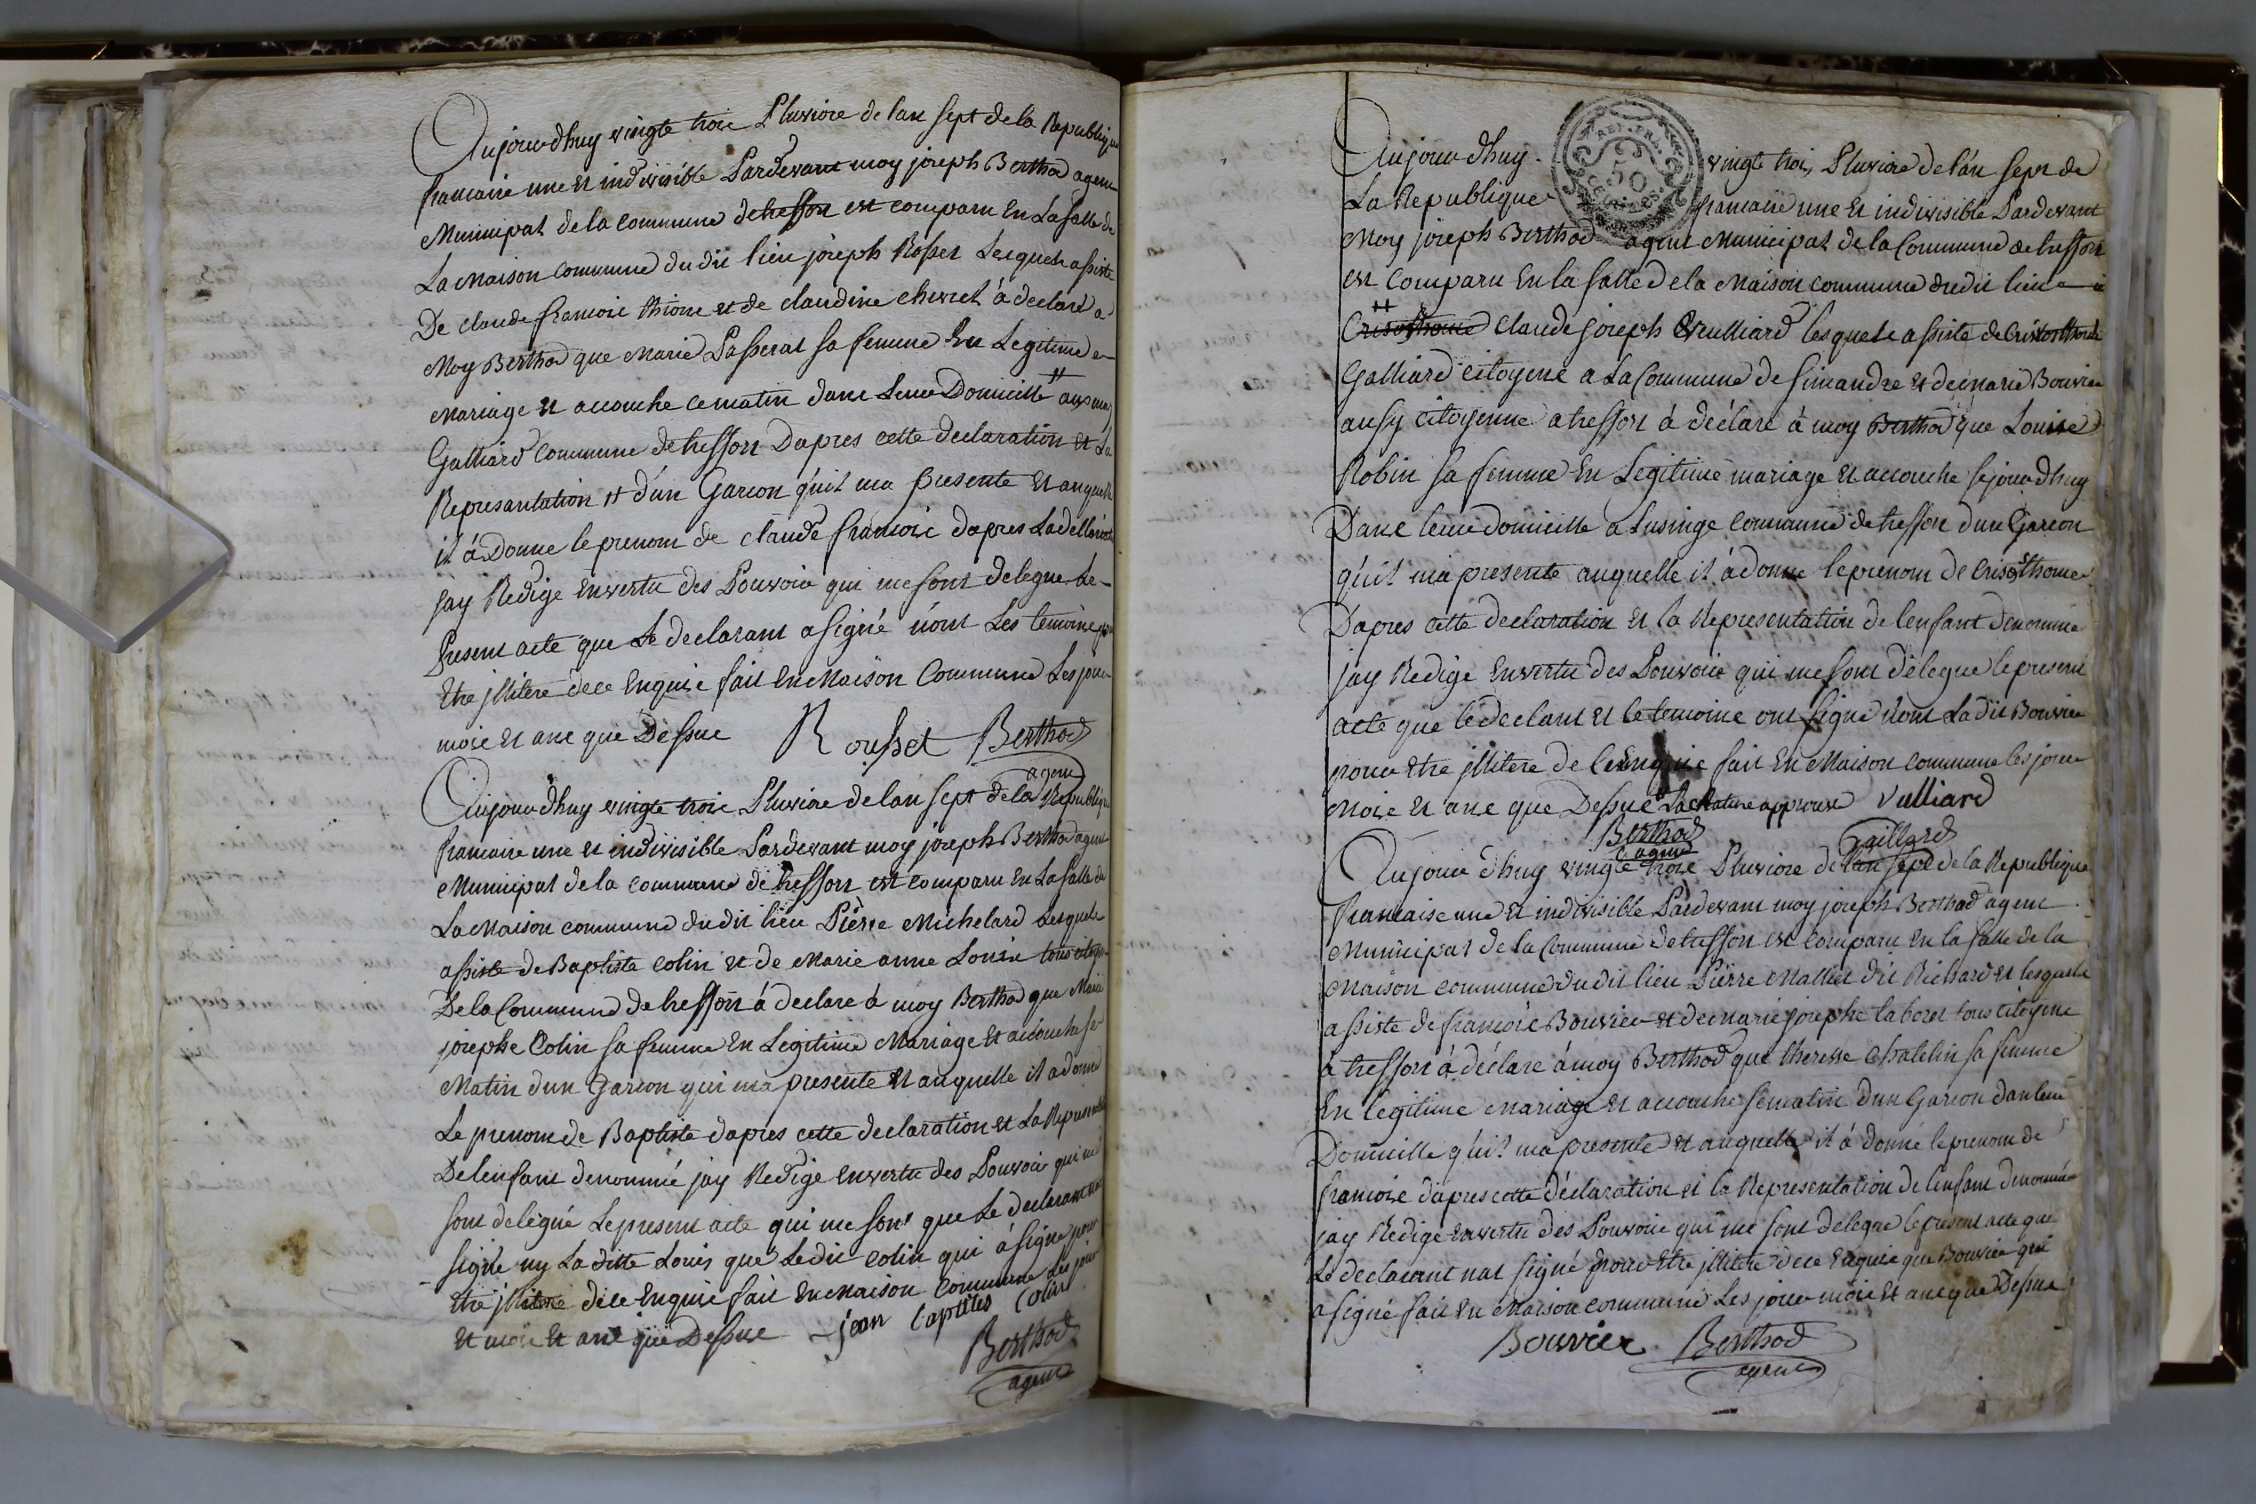 Aujourdhuy vingte trois Pluviose de lan sept de la Republique
francaise une et indivisible Pardevant moy joseph Berthod agent
Municipal de la commune detresson est comparu en La salle de
La Maison commune du dit lieu joseph Rosset Lesquele assiste
De claude francois thione et de claudine chevret à declaré a
Moy Berthod que Marie Passerat sa femme En Legitime
Mariage et accouche ce matin dans Leur Domicille
Galliard commune detresson Dapres cette declaration et La
Represantation d'un Garcon qu'il ma presente et auquelle
il à Donne le prenom de claude francois dapres
jay Redige En vertu des Pouvoir qui me sont delegue Le
Present acte que Le declarant a signé nont Les temoins pour
Etre jllitere de ce Enquise fait En Maison Commune Les jour
mois et ans que Dessue Rousset Berthod
agent
Aujourdhuy vingte trois Pluviose de lan sept de la Republique
francaise une et indivisible Pardevant moy joseph Berthod agent
Municipal de la commune de tresson est comparu En La salle de
La Maison commune du dit lieu Pierre Michelard Lesquele
assiste de Baptiste colin et de Marie anne Louis tous citoyens
De la Commune de tresson à declare à moy Berthod que Marie
josephe Colin sa femme En Legitime Mariage et accouche se
Matin dun Garcon qui ma presente et auquelle il a donne
Le prenom de Baptiste dapres cette declaration et La
De lenfant denommé jay Redige en vertu des Pouvoir qui me
sont delegué Le present acte qui me sont que Le declarant nat
signe ny La ditte Louis que Ledit Colin qui à signé pour
Etre jllitere de ce Enquis fait En Maison Commune Les jour
et mois et ans que Dessue jean Baptiste Colin
Berthod
agent
Aujourdhuy vingte trois Pluviose de l'an sept de
REP. FRA. 50 CENT
La Republique francaise une et indivisible Pardevant
Moy joseph Berthod agent Municipal de la Commune de tresson
est comparu En la salle de la Maison commune dudit lieu
Crisosthome claude joseph Vulliard lesquele assiste de Crisosthome
Galliard citoyene a La Commune de simandre et de marie Bouvier
ausy citoyenne a tresson à déclaré à moy Berthod que Louise
Robin sa femme En Legitime mariage et accouche sejourdhuy
Dans leur domicille a Lusinge commune de tresson dun Garcon
qu'il ma presente auquelle il à donne le prenom de Crisosthome
Dapres cette declaration et la Representation de lenfant denomme
jay Redige En vertu des Pouvoir qui me sont délegue le present
acte que le declant et le temoine ont signe nont La dit Bouvier
pour Etre jllitere de ce Enquise fait En Maison commune les jour
Mois et ans que Dessue La Rature approuve Vulliard
Berthod Gaillard
agent
Aujourdhuy vingte trois Pluviose de lan sept de la Republique
francaise une et indivisible Pardevant moy joseph Berthod agent
Municipal de la Commune de tresson est comparu En la salle de la
Maison commune du dit lieu Pierre Mallet dit Richard et lesquele
assiste de francois Bouvier et de marie josephe laboret tous citoyens
à tresson à déclare à moy Berthod que theresse Chatelin sa femme
En legitime mariage et accouche se matin dun Garcon dans leur
Domicille qu'il ma presente et auquelle il à donné le prenom de
francois dapres cette déclaration et la Representation de lenfant denommé
jay Redige En vertu des Pouvoir qui me sont delegue le present acte que
Le declarant nat signé pour Etre jllitere de ce Enquis que Bouvier qui
a signé fait En Maison commune Les jour mois et ans que Dessue
Bouvier Berthod
agent